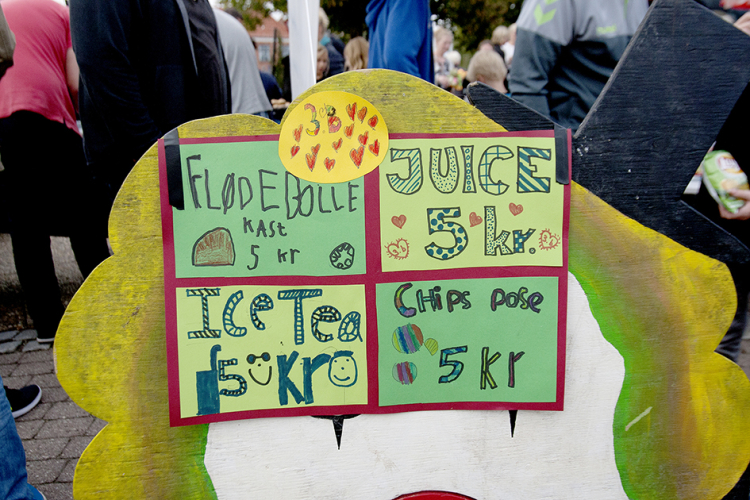 3.B
FLØDEBOLLE
KAST
5 kr
JUICE
5 kr.
Ice Tea
5 kr
CHips pose
5 kr